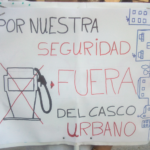 POR NUESTRA
SEGURIDAD
FUERA
DEL CASCO
URBANO